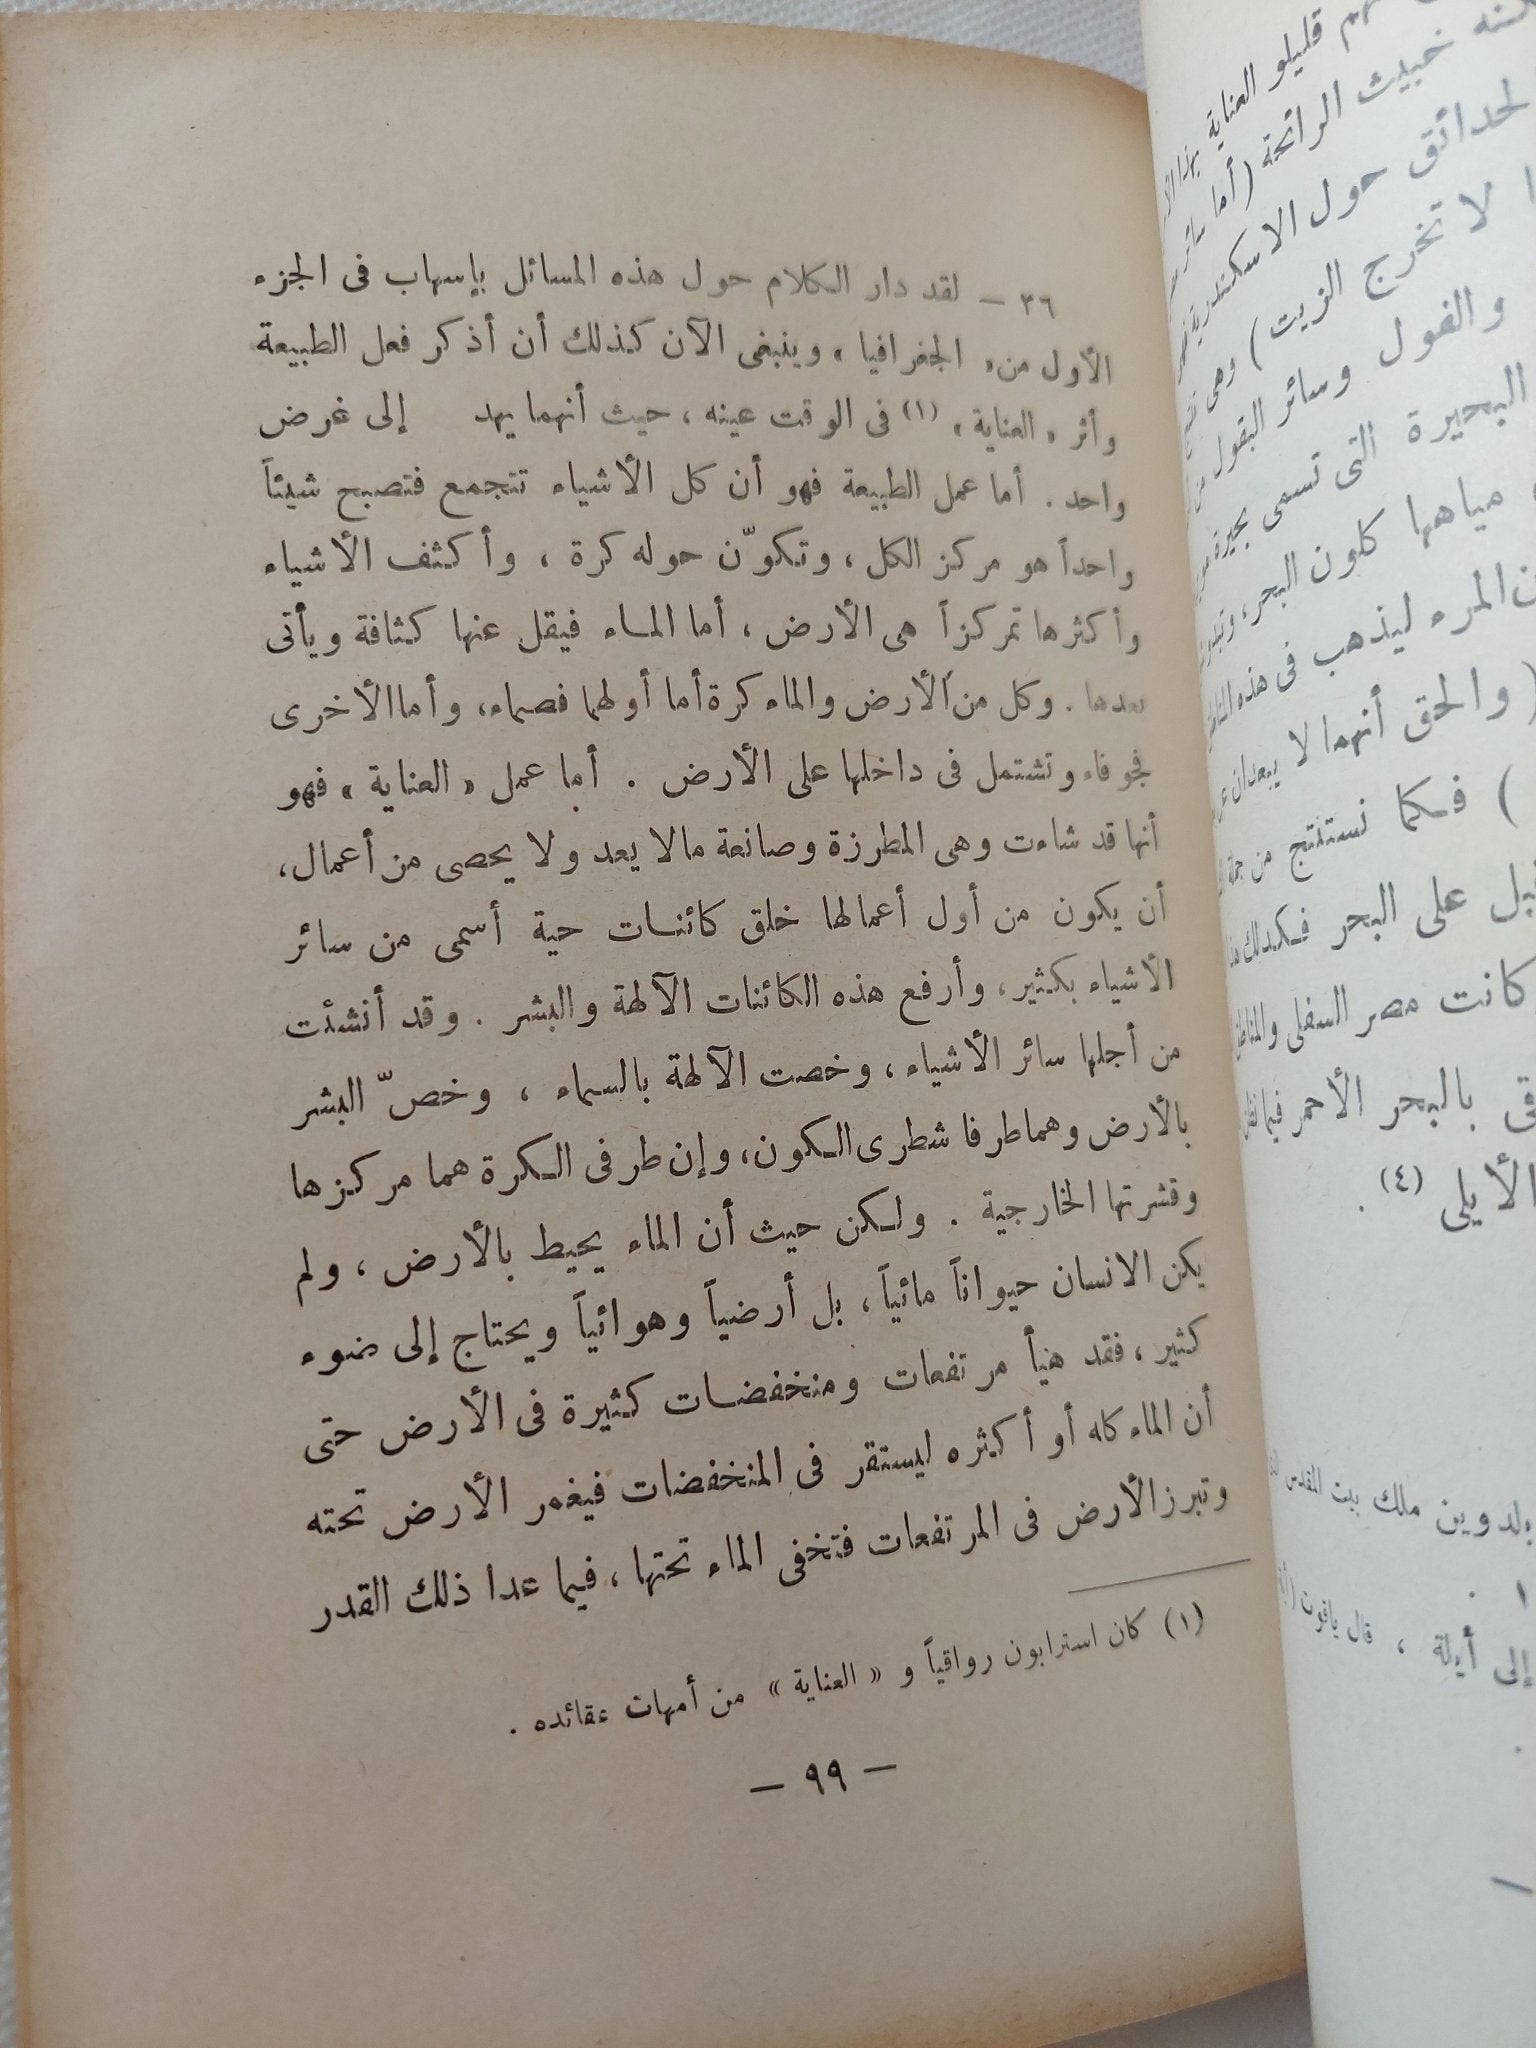 ٣٦ — لقد دار الكلام حول هذه المسائل بإسهاب فى الجزء
الأول من « الجغرافيا » وينبغى الآن كذلك أن أذكر فعل الطبيعة
وأثر « العناية » (١) فى الوقت عينه ، حيث أنهما يهد إلى غرض
واحد . أما عمل الطبيعة فهو أن كل الأشياء تتجمع فتصبح شيئاً
واحداً هو مركز الكل ، وتكوّن حوله كرة ، وأكثف الأشياء
وأكثرها تمركزاً هى الأرض ، أما الماء فيقل عنها كثافة ويأتى
بعدها . وكل من الأرض والماء كرة أما أولهما فصماء، وأما الأخرى
فجوفاء وتشتمل فى داخلها على الأرض . أما عمل « العناية » فهو
أنها قد شاءت وهى المطرزة وصانعة مالا يعد ولا يحصى من أعمال،
أن يكون من أول أعمالها خلق كائنات حية أسمى من سائر
الأشياء بكثير ، وأرفع هذه الكائنات الآلهة والبشر . وقد أنشئت
من أجلها سائر الأشياء ، وخصت الآلهة بالسماء ، وخصّ البشر
بالأرض وهما طرفا شطرى الكون، وإن طرفى الكرة هما مركزها
وقشرتها الخارجية . ولكن حيث أن الماء يحيط بالأرض ، ولم
يكن الانسان حيواناً مائياً ، بل أرضياً وهوائياً ويحتاج إلى ضوء
كثير ، فقد هيأ مرتفعات ومنخفضات كثيرة فى الأرض حتى
أن الماء كله أو أكثره ليستقر فى المنخفضات فيغمر الأرض تحته
وتبرز الأرض فى المرتفعات فتخفى الماء تحتها ، فيما عدا ذلك القدر
(١) كان استرابون رواقياً و « العناية » من أمهات عقائده .
— ٩٩ —
قليلو العناية
خبيث الرائحة (أما سائر
حول الاسكندرية
لا تخرج الزيت ) وهى
والفول وسائر البقول من
البحيرة التى تسمى بحيرة
مياهها كلون البحر ،
المرء ليذهب فى هذه
( والحق أنهما لا يبعدان عن
) فكما نستنتج من
على البحر فكذلك
كانت مصر السفلى
بالبحر الأحمر فيما
الأيلى (٤) .
ملك بيت المقدس
إلى أيلة ، قال ياقوت